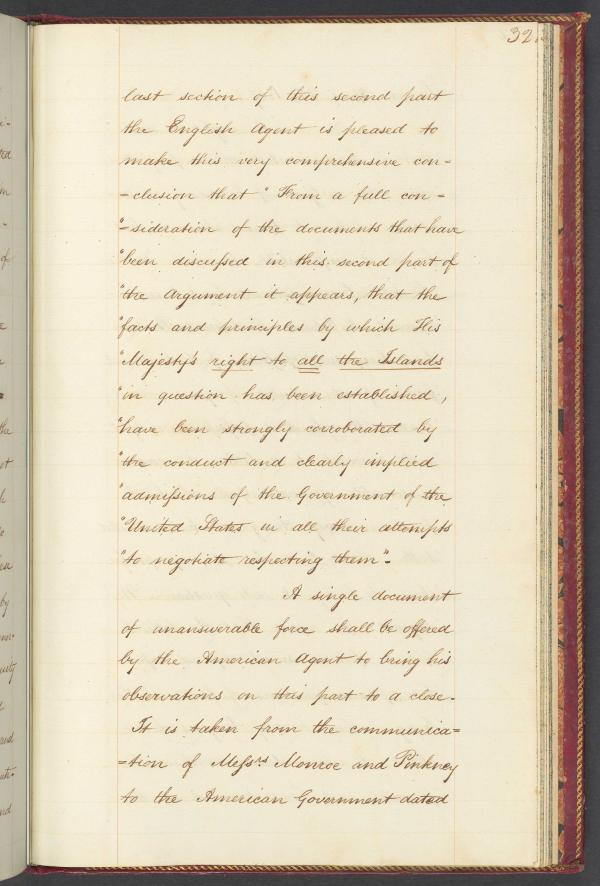 32
last section of this second part
the English Agent is pleased to
make this very comprehensive con-
-clusion that "From a full con-
"-sideration of the documents that have
"been discussed in this second part of
"the Argument it appears, that the
"facts and principles by which His
"Majesty's right to all the Islands
"in question has been established,
"have been strongly corroborated by
"the conduct and clearly implied
"admissions of the Government of the
"United States in all their attempts
"to negotiate respecting them".
A single document
of unanswerable force shall be offered
by the American Agent to bring his
observations on this part to a close.
It is taken from the communica=
=tion of Messrs Monroe and Pinkney
to the American Government dated